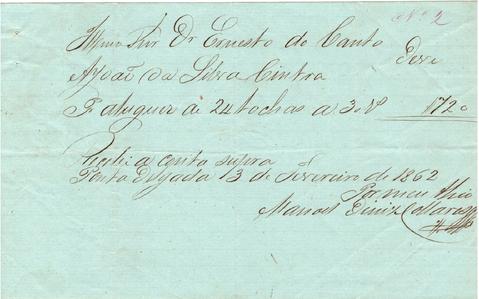 Nº 2
Illmo Snr Dr Ernesto do Canto
Deve
A João da Silva Cintra
P aluguer de 24 tochas a 30 rs 1720
Recebi a conta supra
Ponta Delgada 13 de Fevereiro de 1862
Por meu Thio
Manoel Diniz